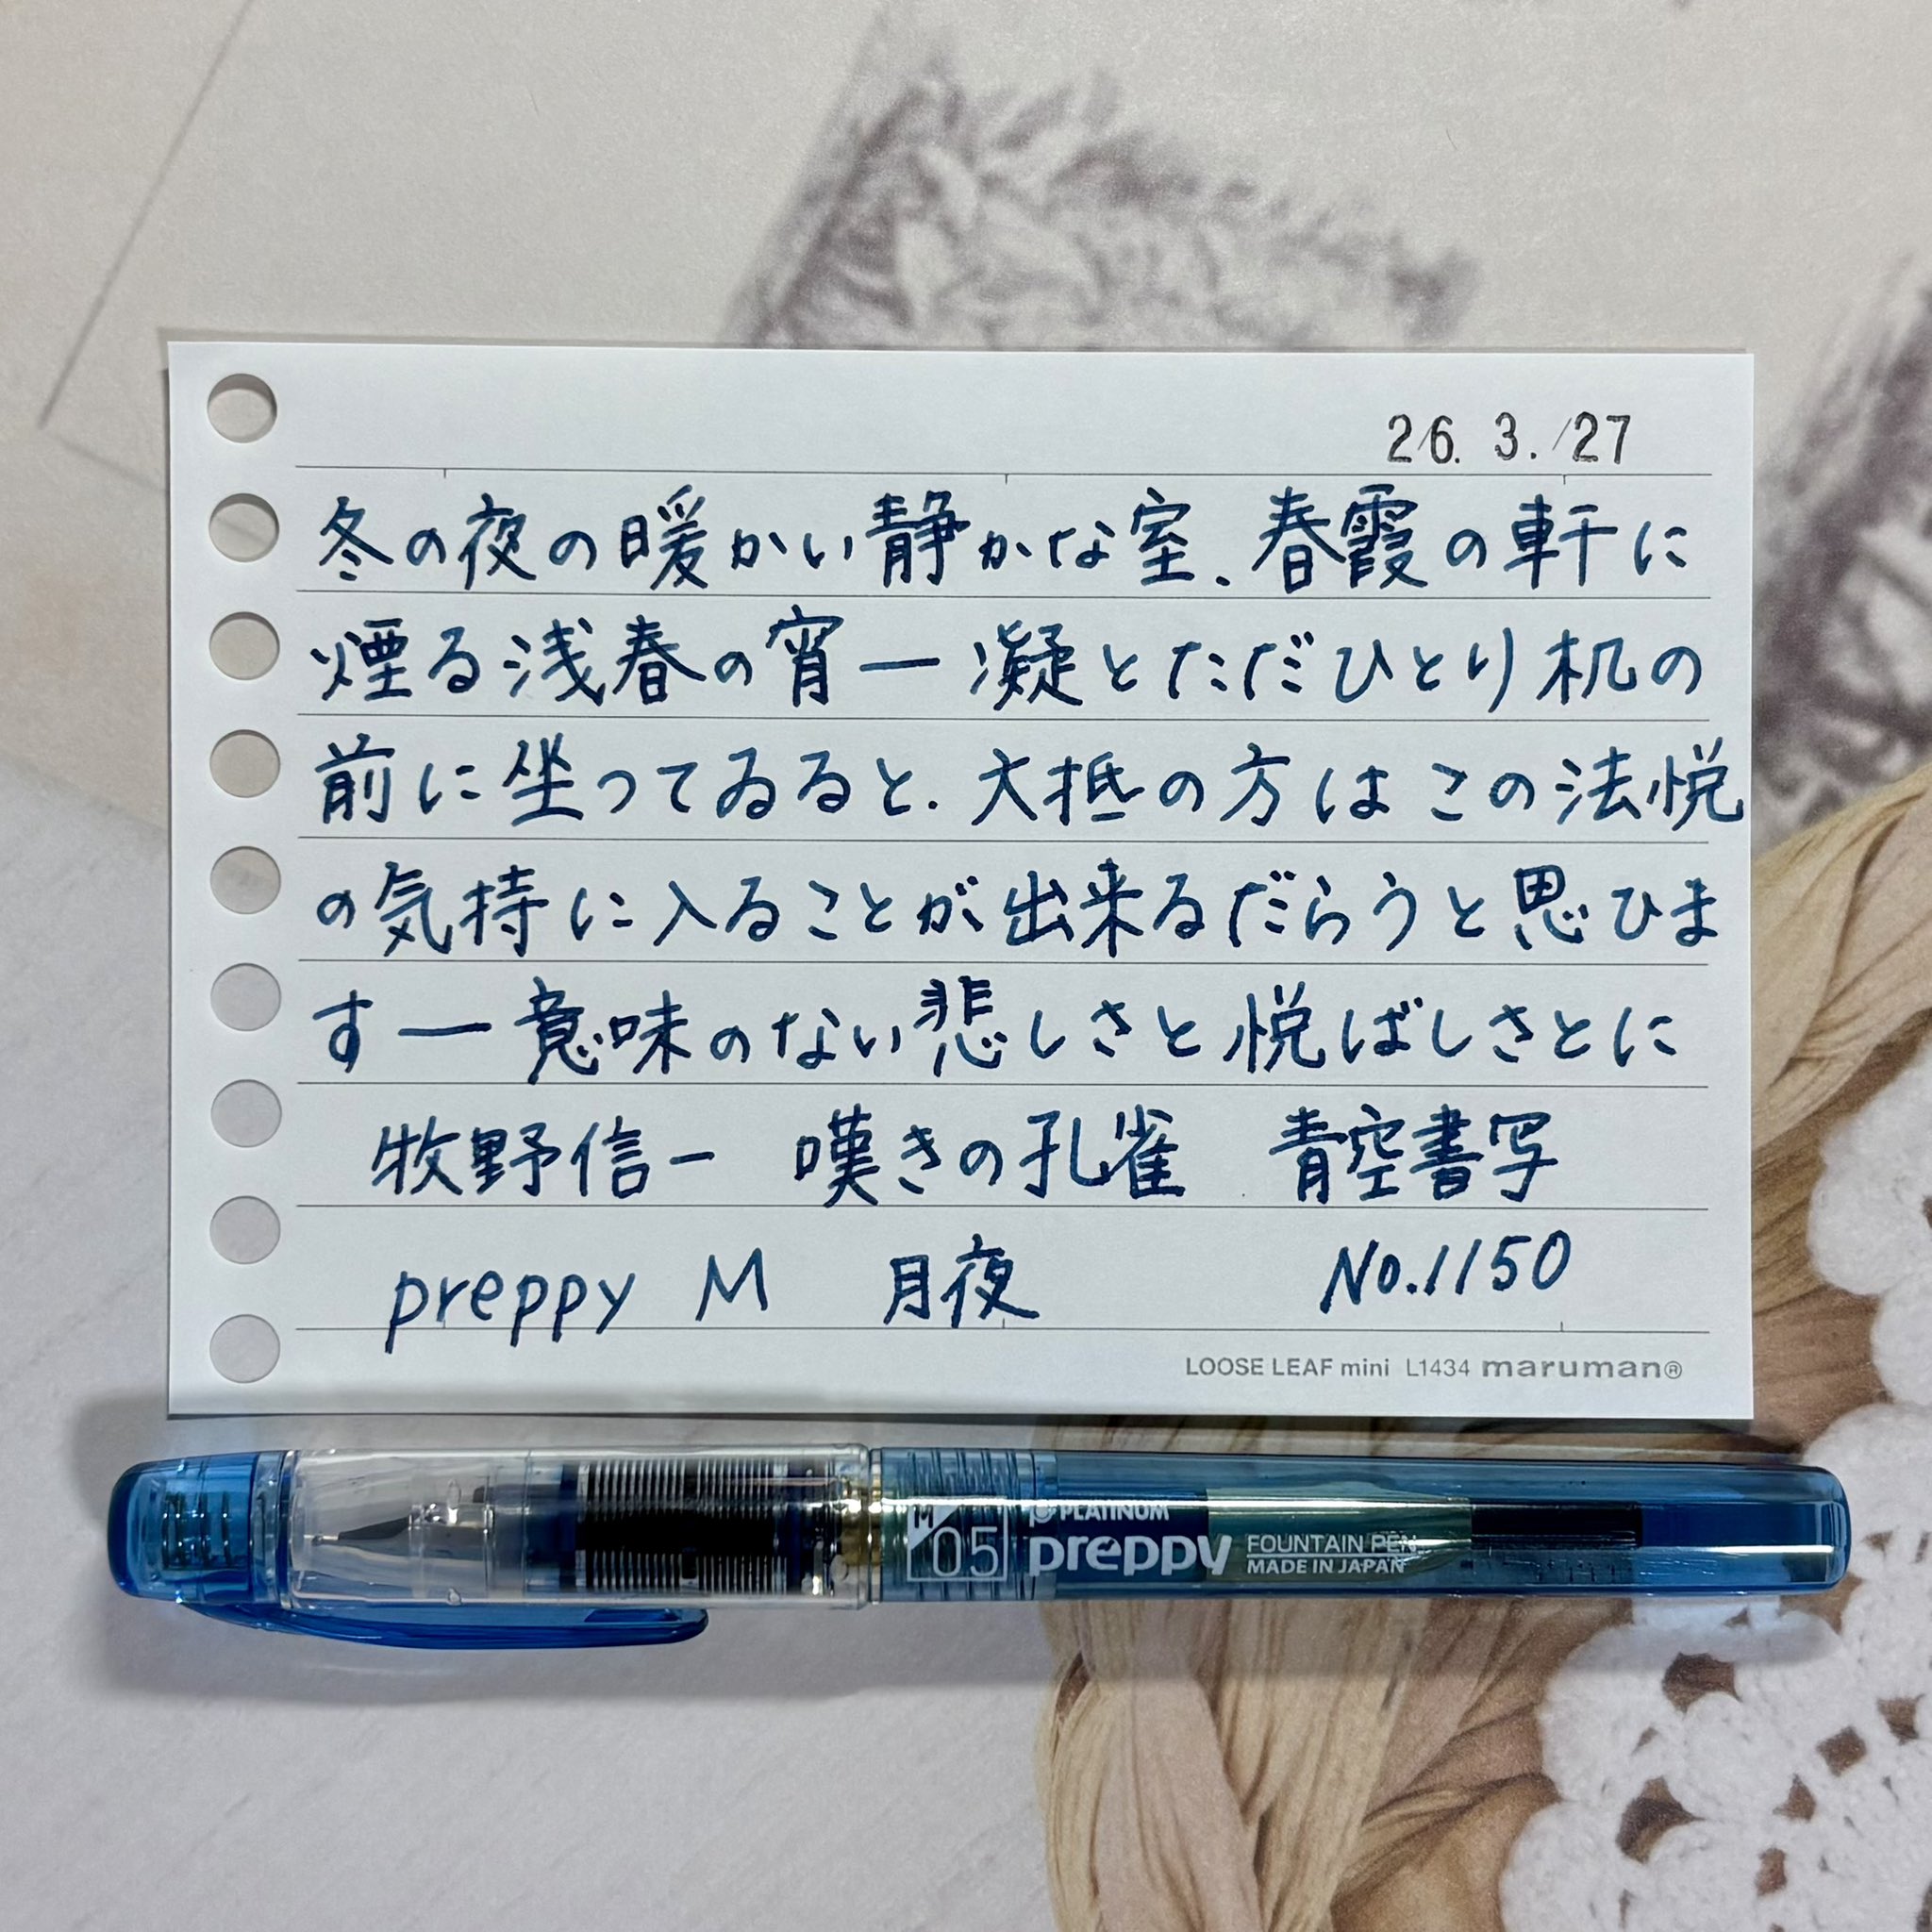 26. 3. 27
冬の夜の暖かい静かな室、春霞の軒に
煙る浅春の宵―凝とただひとり机の
前に坐つてゐると、大抵の方はこの法悦
の気持に入ることが出来るだらうと思ひま
す―意味のない悲しさと悦ばしさとに
牧野信一 嘆きの孔雀 青空書写
preppy M 月夜 No.1150
LOOSE LEAF mini L1434 maruman®
M 05 PLATINUM preppy FOUNTAIN PEN MADE IN JAPAN